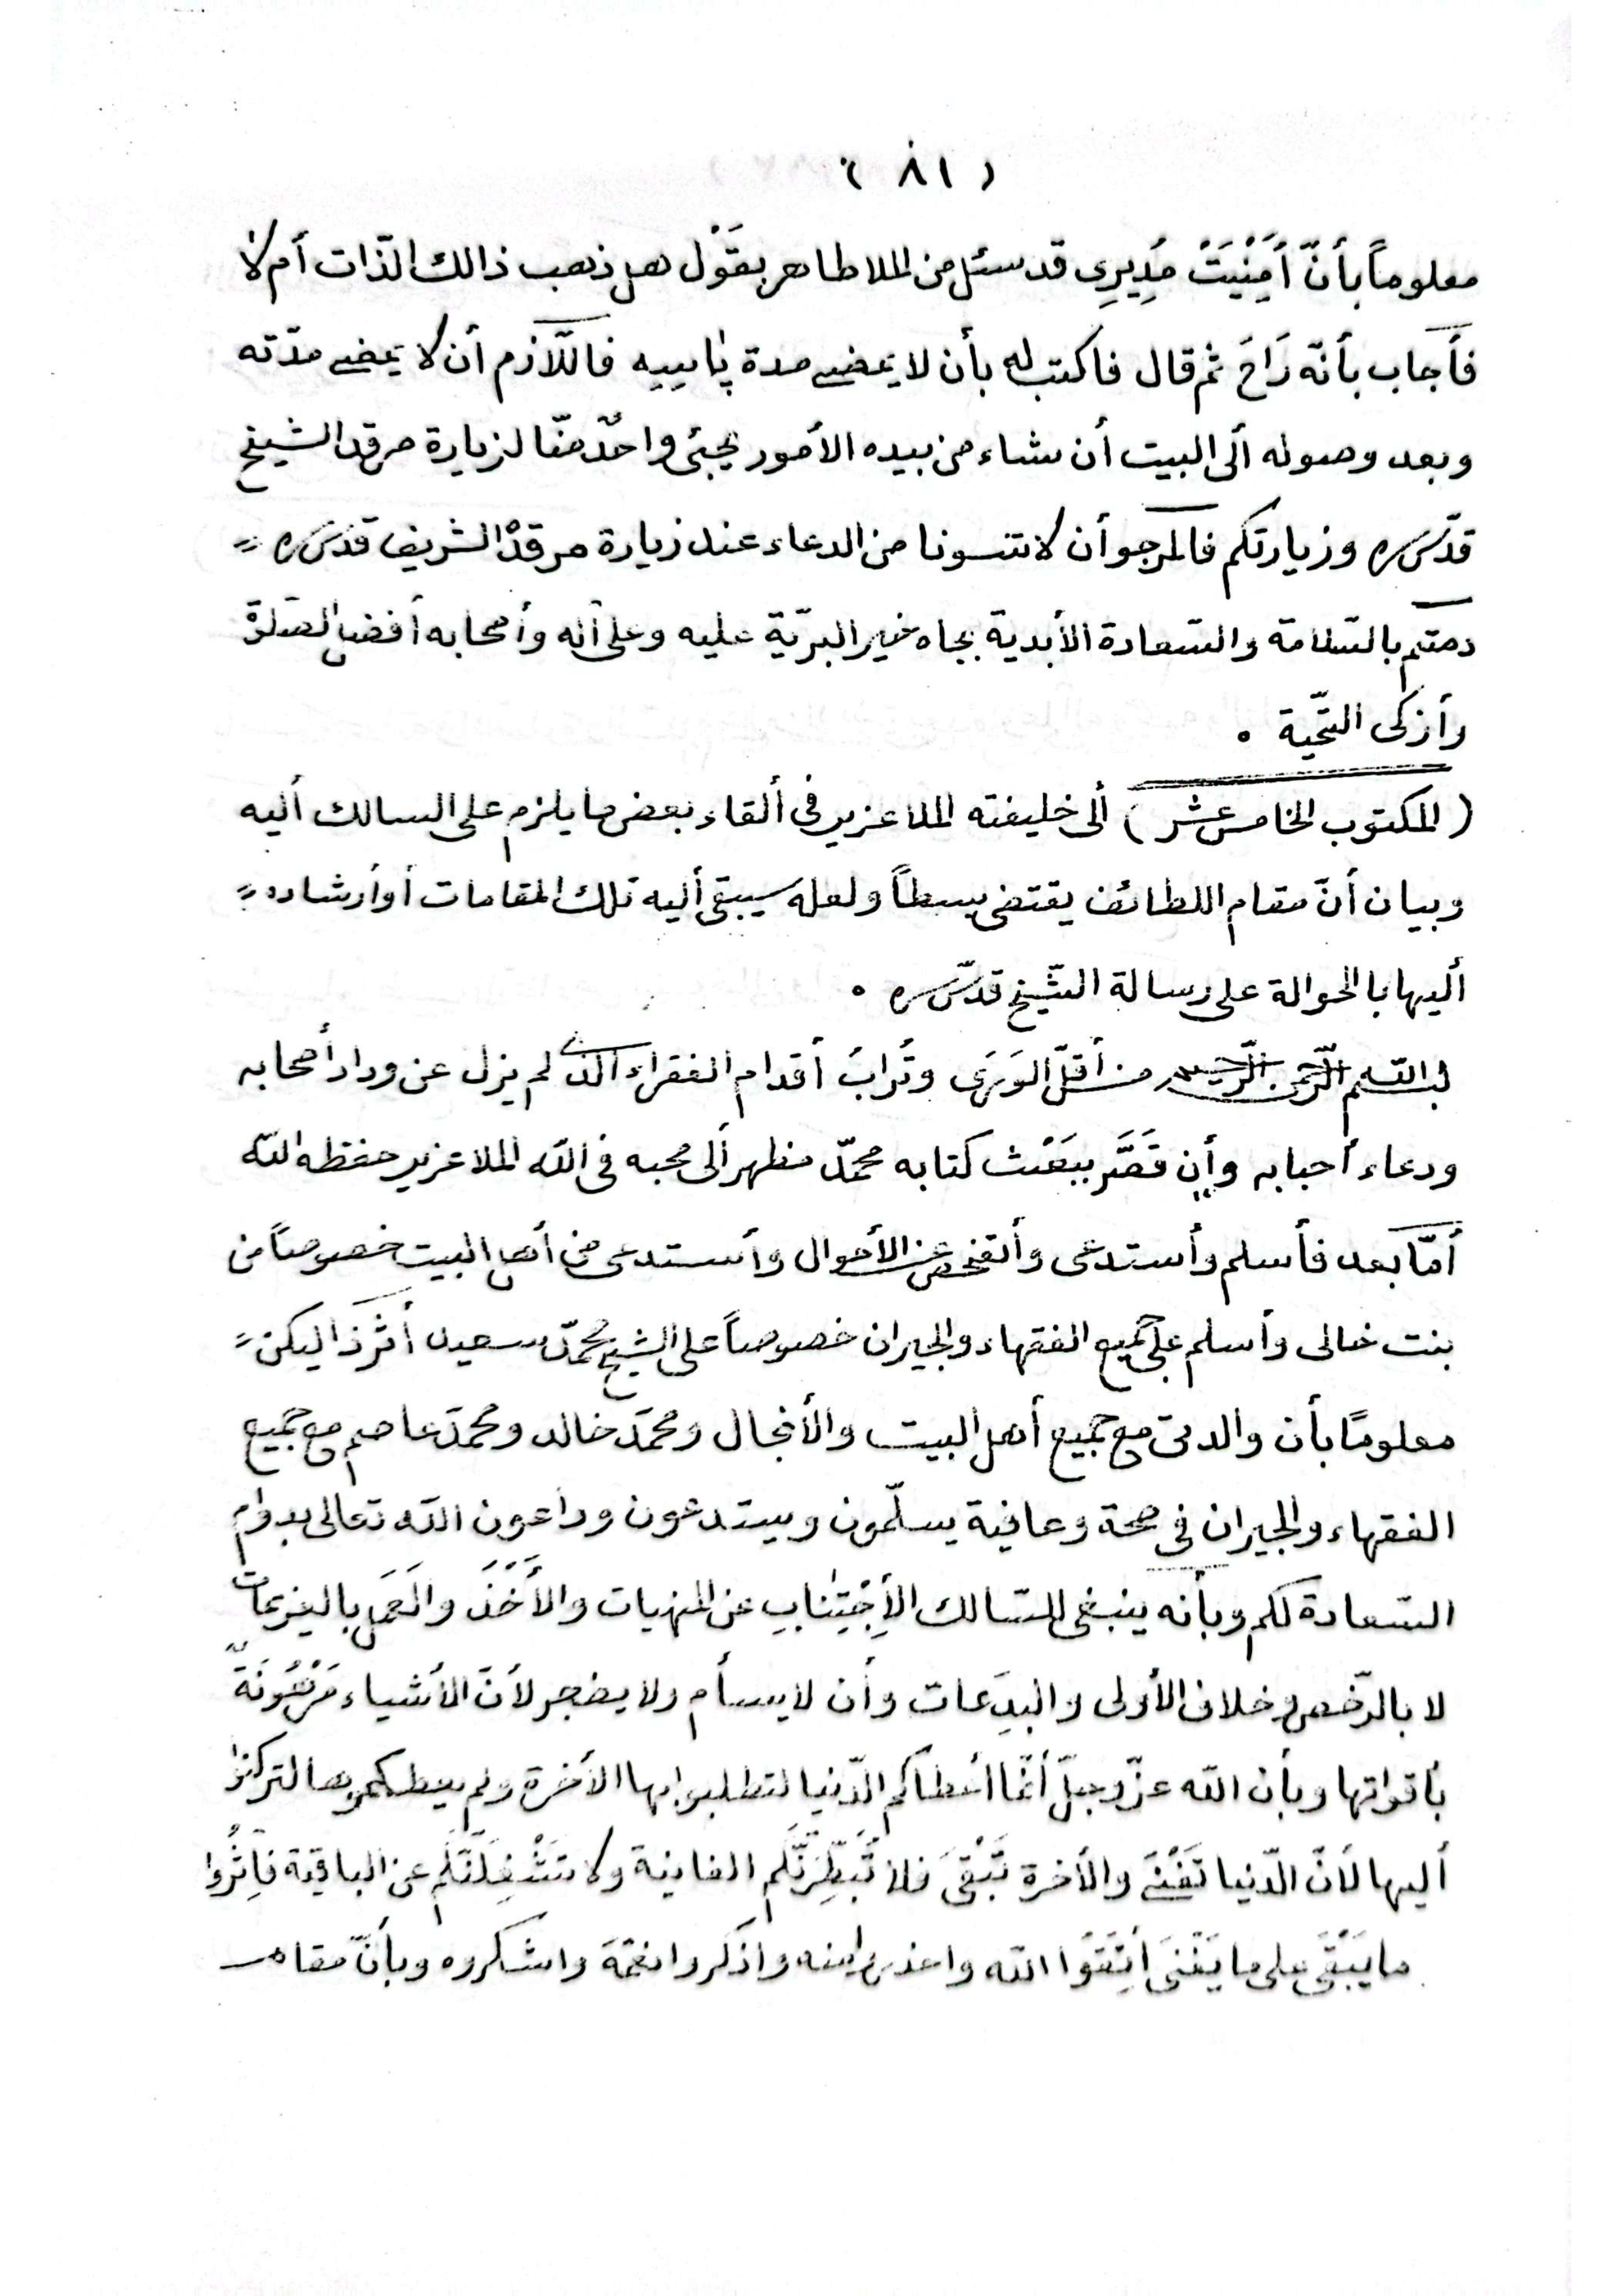 ( ٨١ )
معلوماً بأنّ أَمِنْيَتْ مُدِيرِى قد سئل من الملا طاهر بقَوْل هل ذهب ذالك الذّات أم لا
فأجاب بأنّه رَاحَ ثم قال فاكتب له بأن لا يمضى مدة پاپييه فاللّازم أن لا يمضى مدّته
وبعد وصوله ألى البيت أن شاء من بيده الأمور يجئ واحدٌ منّا لزيارة مرقد الشيخ
قدّس سره وزيارتكم فالمرجو أن لا تنسونا من الدعاء عند زيارة مرقدْ الشريف قدّس سره
دمتم بالسّلامة والسّعادة الأبدية بجاه خير البريّة عليه وعلى آله وأصحابه أفضل الصّلوة
وأزكى التّحية .
( المكتوب الخامس عشر ) ألى خليفته الملا عزير فى ألقاء بعض ما يلزم على السالك أليه
وبيان أنّ مقام اللطائف يقتضى بسطاً ولعله سيبقى أليه تلك المقامات أو أرشاده
أليها با الحوالة على رسالة الشّيخ قدّس سره .
بسم اللّٰه الرّحمن الرّحيم من أقلّ الوَرَى وتُرابَ أقدام الفقراء الذى لم يزل عن وداد أصحابه
ودعاء أحبابه وأن قَصَّر ببَعْث كتابه محمّد مظهر ألى محبه فى اللّٰه الملا عزير حفظه اللّٰه
أمّا بعد فأسلم وأستدعى وأتفحص عن الأحوال وأستدعى من أهل البيت خصوصاً من
بنت خالى وأسلم على جميع الفقهاء والجيران خصوصاً على الشيخ محمّد سعيد أثرذا ليكن
معلومًا بأن والدتى مع جميع أهل البيت والأنجال ومحمّد خالد ومحمّد عاصم مع جميع
الفقهاء والجيران فى صحة وعافية يسلّمون ويستدعون وداعون اللّٰه تعالى بدوام
السّعادة لكم وبأنه ينبغى للسّالك الأِجْتِنابِ عن المنهيات والأَخْذَ والعَمَل بالعزيمات
لا بالرّخص وخلاف الأولى والبِدَعات وأن لا يسأم ولا يضجر لأنّ الأشياء مَرْهُونَةٌ
بأقواتها وبأن اللّٰه عزّ وجلّ أنّما أعطاكم الدّنيا لتطلبوا بها الأخرة ولم يعطكموها لتركنوا
أليها لأنّ الدّنيا تَفْنَى والأخرة تَبْقَى فلا تُبَطِّرَنَّكُم الفانية ولا تَشْغِلَنَّكُم عن الباقية فأِثُروا
ما يَبْقَى على ما يَفْنَى أتِقَوُا اللّٰه واحذروا منه واذكروا نعمَةَ واشكروه وبأنّ مقام